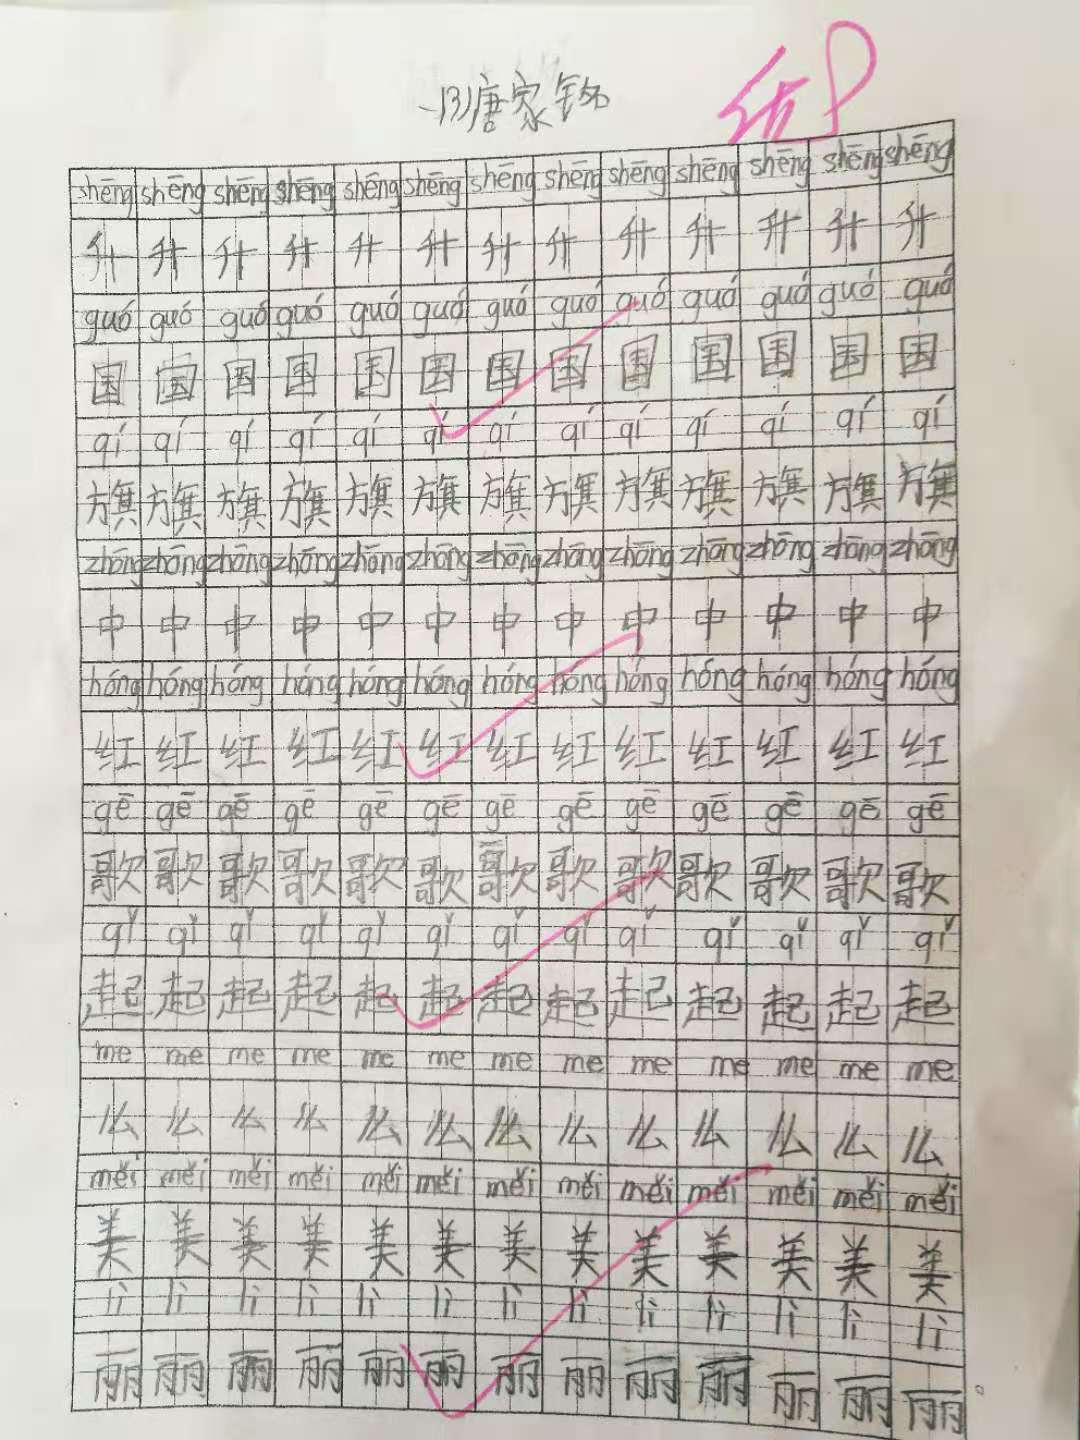 一(3)唐家铭
shēng shēng shēng shēng shēng shēng shēng shēng shēng shēng shēng shēng shēng
升 升 升 升 升 升 升 升 升 升 升 升 升
guó guó guó guó guó guó guó guó guó guó guó guó guó
国 国 国 国 国 国 国 国 国 国 国 国 国
qí qí qí qí qí qí qí qí qí qí qí qí qí
旗 旗 旗 旗 旗 旗 旗 旗 旗 旗 旗 旗 旗
zhōng zhōng zhōng zhōng zhōng zhōng zhōng zhōng zhōng zhōng zhōng zhōng zhōng
中 中 中 中 中 中 中 中 中 中 中 中 中
hóng hóng hóng hóng hóng hóng hóng hóng hóng hóng hóng hóng hóng
红 红 红 红 红 红 红 红 红 红 红 红 红
gē gē gē gē gē gē gē gē gē gē gē gē gē
歌 歌 歌 歌 歌 歌 歌 歌 歌 歌 歌 歌 歌
qǐ qǐ qǐ qǐ qǐ qǐ qǐ qǐ qǐ qǐ qǐ qǐ qǐ
起 起 起 起 起 起 起 起 起 起 起 起 起
me me me me me me me me me me me me me
么 么 么 么 么 么 么 么 么 么 么 么 么
měi měi měi měi měi měi měi měi měi měi měi měi měi
美 美 美 美 美 美 美 美 美 美 美 美 美
lì lì lì lì lì lì lì lì lì lì lì lì lì
丽 丽 丽 丽 丽 丽 丽 丽 丽 丽 丽 丽 丽